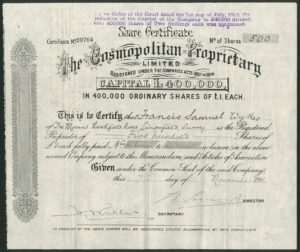 by Order of the Court dated the 1st day of July, 1913, the
Reduction of the Capital of the Company to £40,000 divided
into 400,000 shares of Two Shillings each was
Share Certificate
Certificate No 20704
No of Shares 500
The Cosmopolitan Proprietary
LIMITED
REGISTERED UNDER THE COMPANIES ACTS
CAPITAL £400,000,
IN 400,000 ORDINARY SHARES OF £1. EACH.
This is to Certify that Francis Samuel
of The Mount, Surrey is the Registered
Proprietor of Five Hundred Shares of
£1 each fully paid No inclusive in the above
named Company subject to the Memorandum and Articles of Association
Given under the Common Seal of the said Company
this day of November 1911
DIRECTOR
SECRETARY
NO TRANSFER OF THE ABOVE SHARES WILL BE REGISTERED UNLESS ACCOMPANIED BY THIS CERTIFICATE.